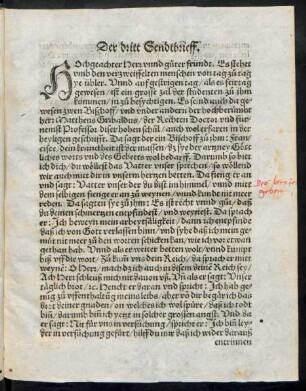 Der dritt Sendtbrieff.
HOchgeachter Herr vnnd güter fründt. Es stehet
vmb den verzweiffelten menschen von tag zů tag
ye übler. Vnnd auff gestrigen tag / als es feirtag
gewesen / ist ein grosse zal der studenten zů jhm
kommen / jn zů besichtigen. Es send auch da ge-
wesen zwen Bischoff / vnd vnder andern der hochberümbt
herr Mattheus Gribaldus / der Rechten Doctor vnd für-
nemst Professor diser hohen schůl / auch wol erfaren in der
heyligen geschrifft. Da sagt der ein Bischoff zů jhm: Fran-
cisce / dein kranckheit ist dermassen / dz sye der artzney Gött-
liches worts vnd des Gebetts wol bedarff. Darumb so bitt
ich dich / du wöllest das Vatter vnser sprechen / so wöllend
wir auch mit dir in vnserm hertzen betten. Da fieng er an
vnd sagt: Vatter vnser der du bist im himmel / vnnd mit
dem selbigen fienge er an zů weynen / vnnd kundt nit meer
reden. Da sagten sye zů jhm: Es ist recht vnnd gůt / daß
du deinen schmertzen empfindest / vnd weynest. Da sprach
er: Ich beweyn mein arbeitsäligkeit / dann ich empfinde
daß ich von Gott verlassen binn / vnd sye daß mich ge-
müt nit meer zů den worten schicken kan / wie ich vor etwan
gethan hab. Vnnd als er weiter betten wolt / vnnd kumpt
biß vff die wort / Zů kum vns dein Rych / da sprach er mit
weynen: O Herr / mach daß ich auch in disem deine Reich sey /
Ach Herr schleüß mich nit dauon vß. Vñ als er sagt: Vnser
täglich brot / etc. Henckt er daran vnd spricht: Ich hab ge-
nůg zů vffenthaltung meins leibs / aber vor dir begär ich das
brot deiner gnaden / on welches ich wol spür / daß ich todt
bin / darumb bin ich yetz in solcher grossen angst. Vnd da
er sagt: Nit für vns in versůchung / spricht er: Ich bin ley-
der in versůchung gefürt / hilff du mir daß ich wider darauß
entrinnen